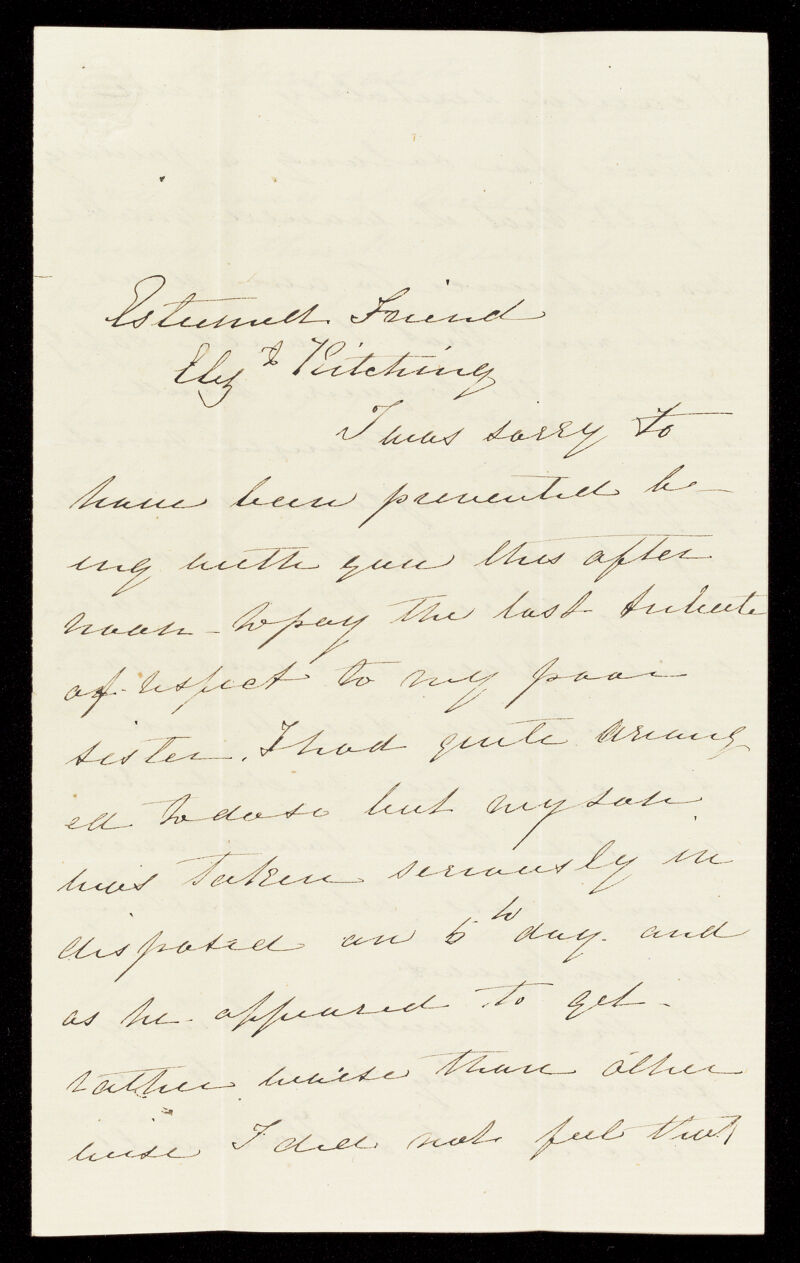 Esteemed Friend
Elizth Kitching
I was sorry to
have been prevented be-
ing with you this after
noon - to pay the last tribute
of respect to my poor
sister. I had quite arang
ed to do so but my son
was taken seriously in
disposed on 6th day. and
as he appeared to get
rather worse than other
wise I did not feel that